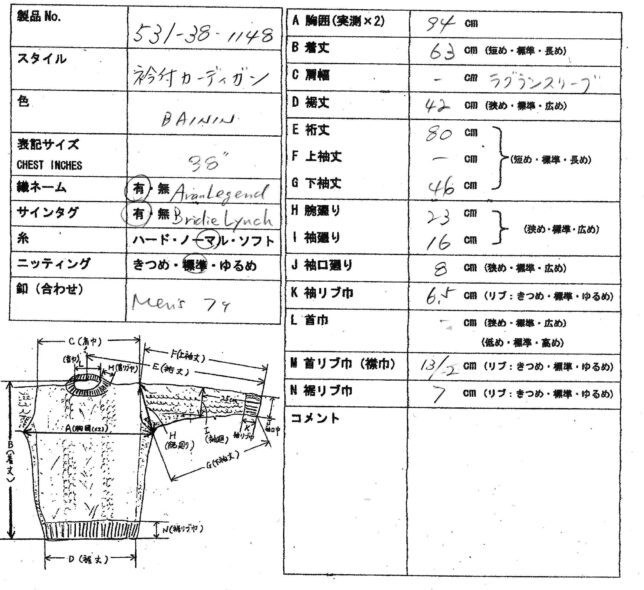 製品 No. 531-38-1148
スタイル 衿付カーディガン
色 BAININ
表記サイズ
CHEST INCHES 38"
織ネーム 有・無 AranLegend
サインタグ 有・無 Bridie Lynch
糸 ハード・ノーマル・ソフト
ニッティング きつめ・標準・ゆるめ
釦（合わせ） Men's 79
A 胸囲(実測×2) 94 cm
B 着丈 63 cm (短め・標準・長め)
C 肩幅 - cm ラグランスリーブ
D 裾丈 42 cm (狭め・標準・広め)
E 裄丈 80 cm
F 上袖丈 - cm (短め・標準・長め)
G 下袖丈 46 cm
H 腕廻り 23 cm
(狭め・標準・広め)
I 袖廻り 16 cm
J 袖口廻り 8 cm (狭め・標準・広め)
K 袖リブ巾 6.5 cm (リブ：きつめ・標準・ゆるめ)
L 首巾 - cm (狭め・標準・広め)
(低め・標準・高め)
M 首リブ巾（襟巾） 13/-2 cm (リブ：きつめ・標準・ゆるめ)
N 裾リブ巾 7 cm (リブ：きつめ・標準・ゆるめ)
コメント
C(肩巾)
F(上袖丈)
E(裄丈)
(首巾)
M(首リブ巾)
A(胸囲(x2))
B(着丈)
H(腕廻り)
I(袖廻)
K
袖リブ巾
G(下袖丈)
N(裾リブ巾)
D(裾丈)